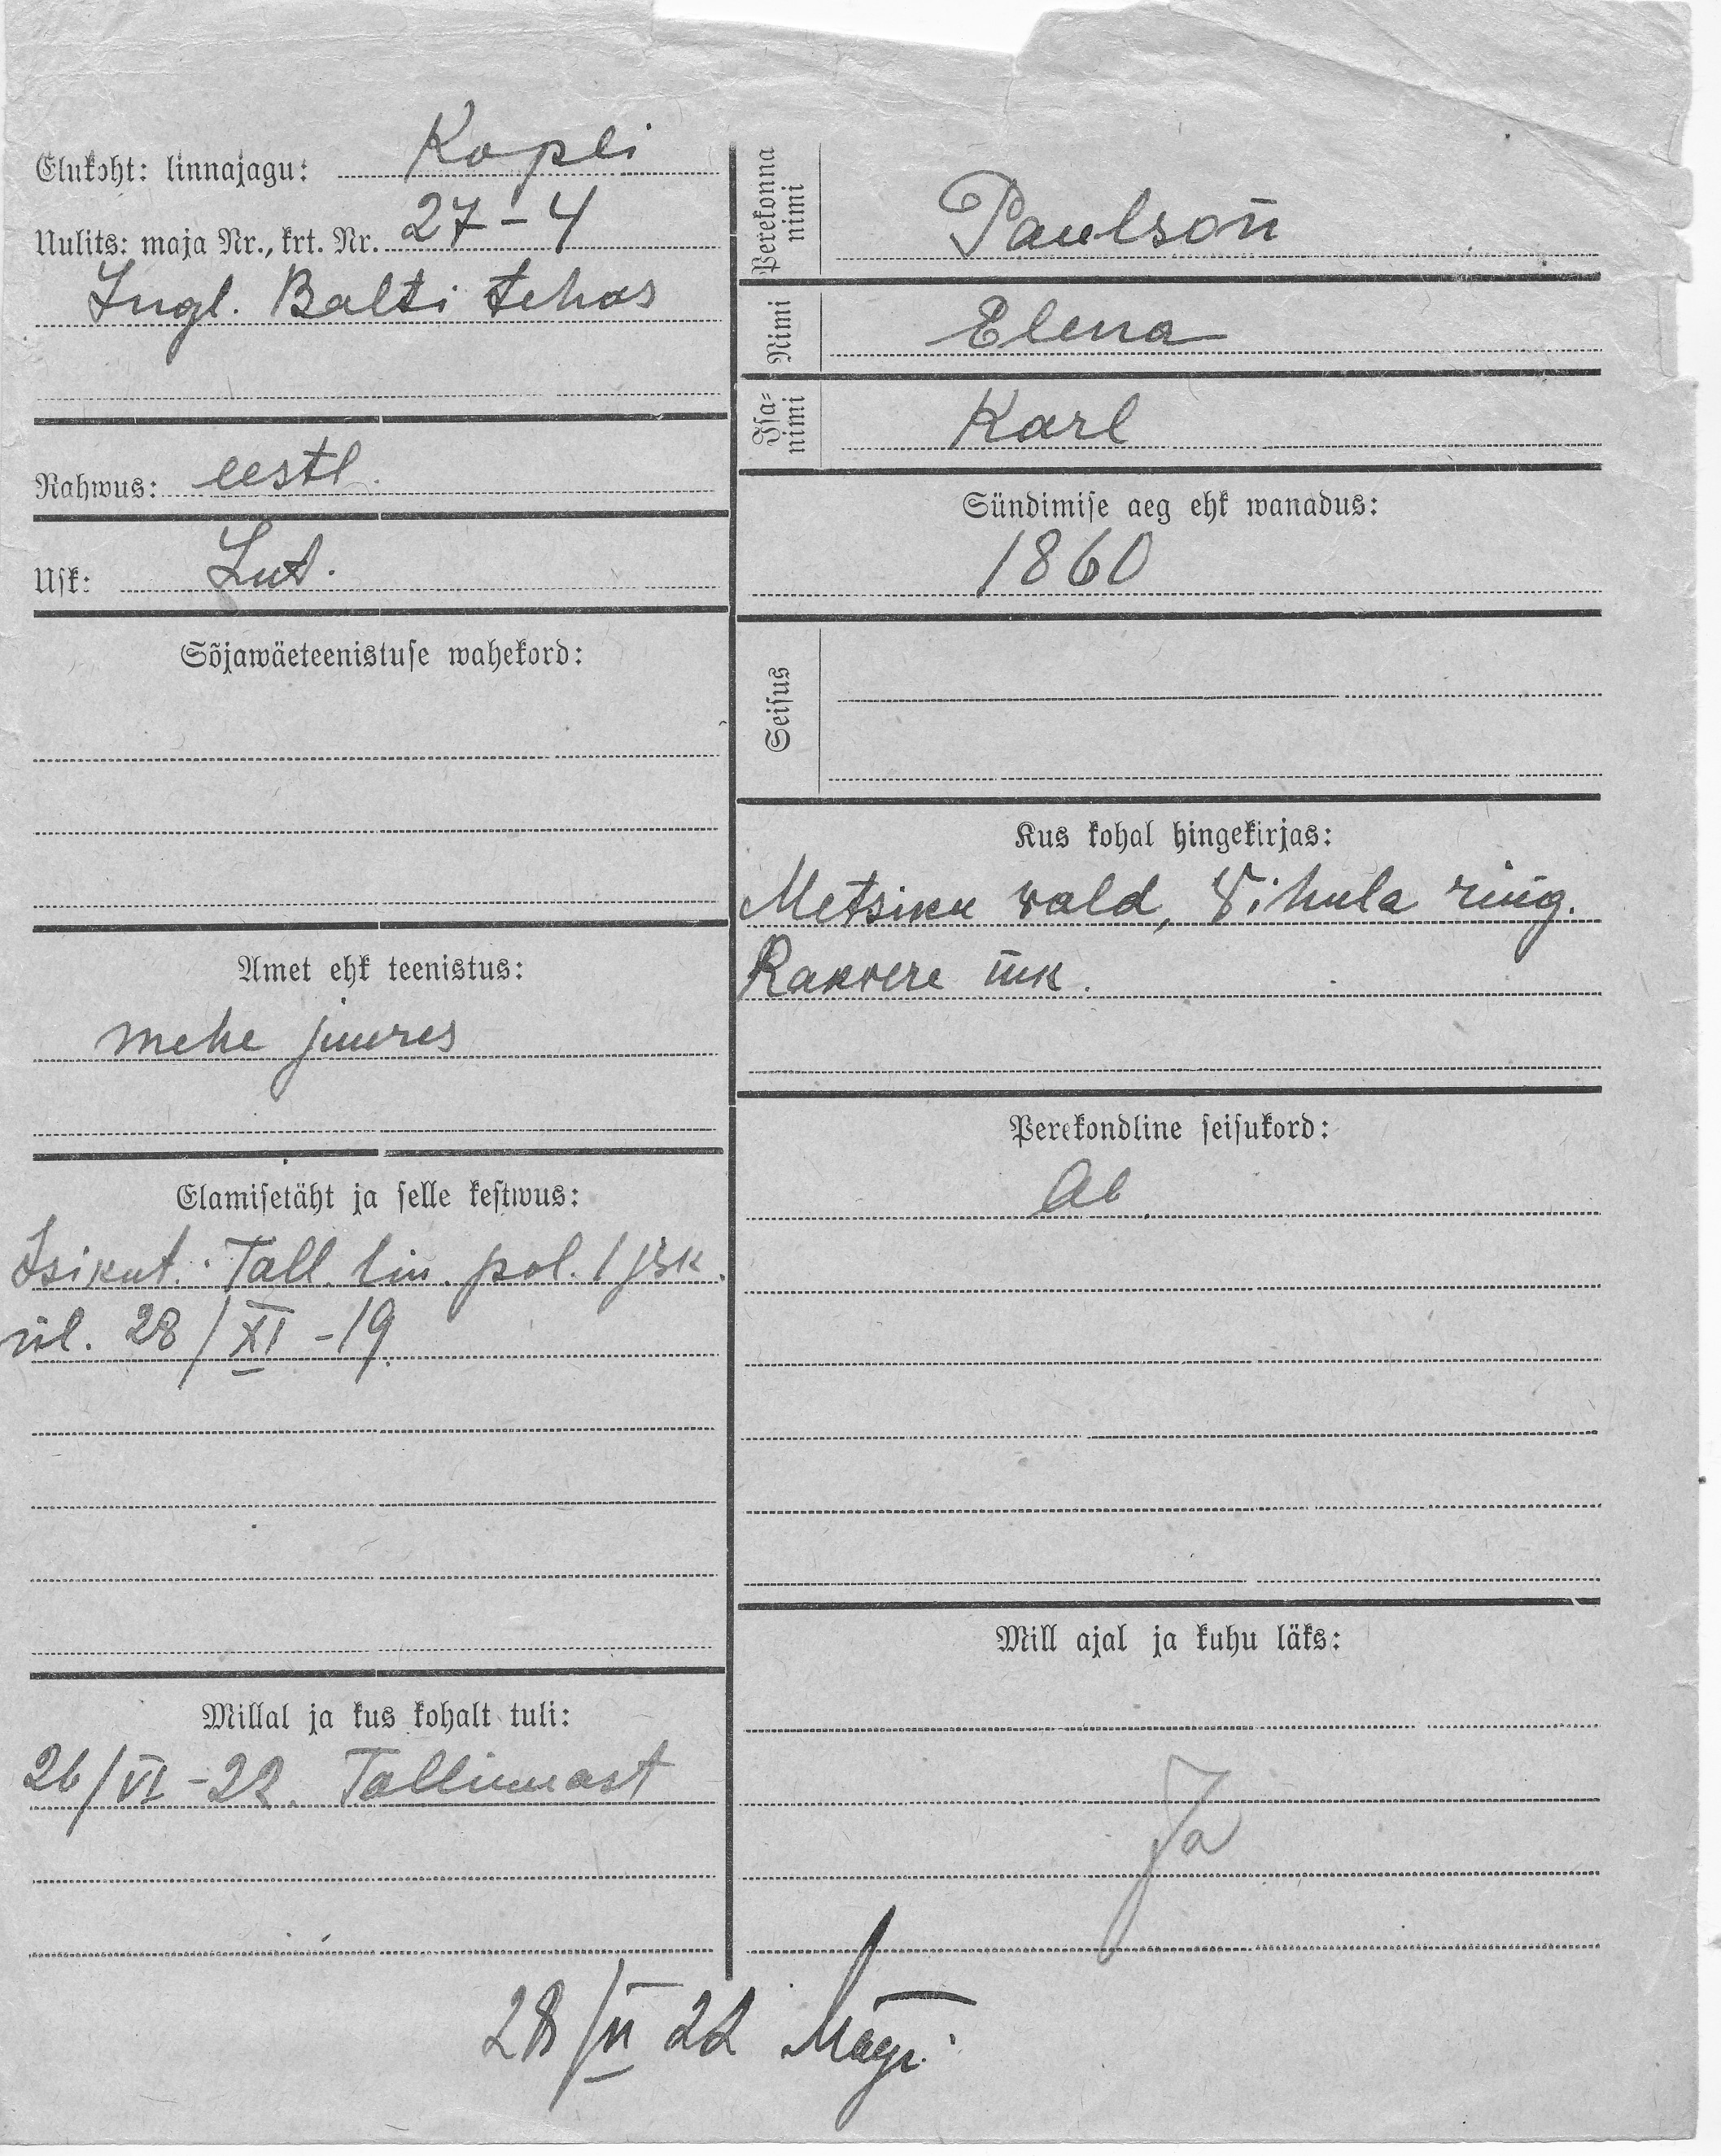 Elukoht: linnajagu: Kopli
Uulits: maja Nr., krt. Nr. 27-4
Ingl. Balti tehas
Rahwus: eestl.
Usk: Lut.
Sõjawäeteenistuse wahekord:
Amet ehk teenistus:
mehe juures
Elamisetäht ja selle kestwus:
Isikut. Tall. lin. pol. 1 jsk.
ül. 28/XI -19.
Millal ja kus kohalt tuli:
26/VI -22. Tallinnast
Perekonna
nimi
Paulson
Nimi
Elena
Isa-
nimi
Karl
Sündimise aeg ehk wanadus:
1860
Seisus
Kus kohal hingekirjas:
Metsiku vald, Vihula ring.
Rakvere mk.
Perekondline seisukord:
Ab.
Mill ajal ja kuhu läks:
Ja
28/VI 22 Mägi